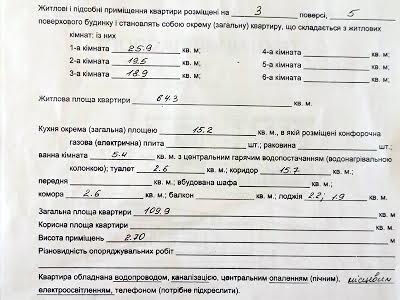 Житлові і підсобні приміщення квартири розміщені на 3 поверсі, 5
поверхового будинку і становлять собою окрему (загальну) квартиру, що складається з житлових
кімнат: із них
1-а кімната 25.9 кв. м; 4-а кімната кв. м;
2-а кімната 19.5 кв. м; 5-а кімната кв. м;
3-а кімната 18.9 кв. м; 6-а кімната кв. м;
Житлова площа квартири 64.3 кв. м.
Кухня окрема (загальна) площею 15.2 кв. м., в якій розміщені конфорочна
газова (електрична) плита шт.; раковина шт.;
ванна кімната 5.4 кв. м. з центральним гарячим водопостачанням (водонагрівальною
колонкою); туалет 2.6 кв. м.; коридор 15.7 кв. м.;
передня кв. м.; вбудована шафа кв. м.;
комора 2.6 кв. м.; балкон кв. м.; лоджія 2.2; 1.9 кв. м.
Загальна площа квартири 109.9 кв. м.
Корисна площа квартири кв. м.
Висота приміщень 2.70 м
Різновидність опоряджувальних робіт
Квартира обладнана водопроводом, каналізацією, центральним опаленням (пічним), місцевим
електроосвітленням, телефоном (потрібне підкреслити).